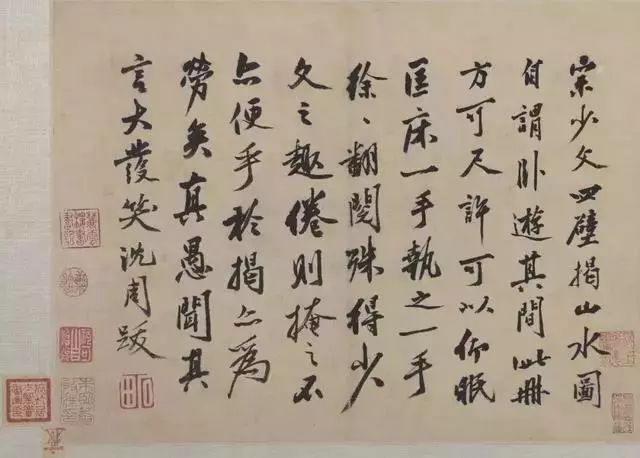 宗少文四壁揭山水圖
自謂臥遊其間此冊
方可尺許可以仰眠
匡床一手執之一手
徐、翻閱殊得少
文之趣倦則掩之不
亦便乎於揭亦為
勞矣真愚聞其
言大發笑沈周跋
石田